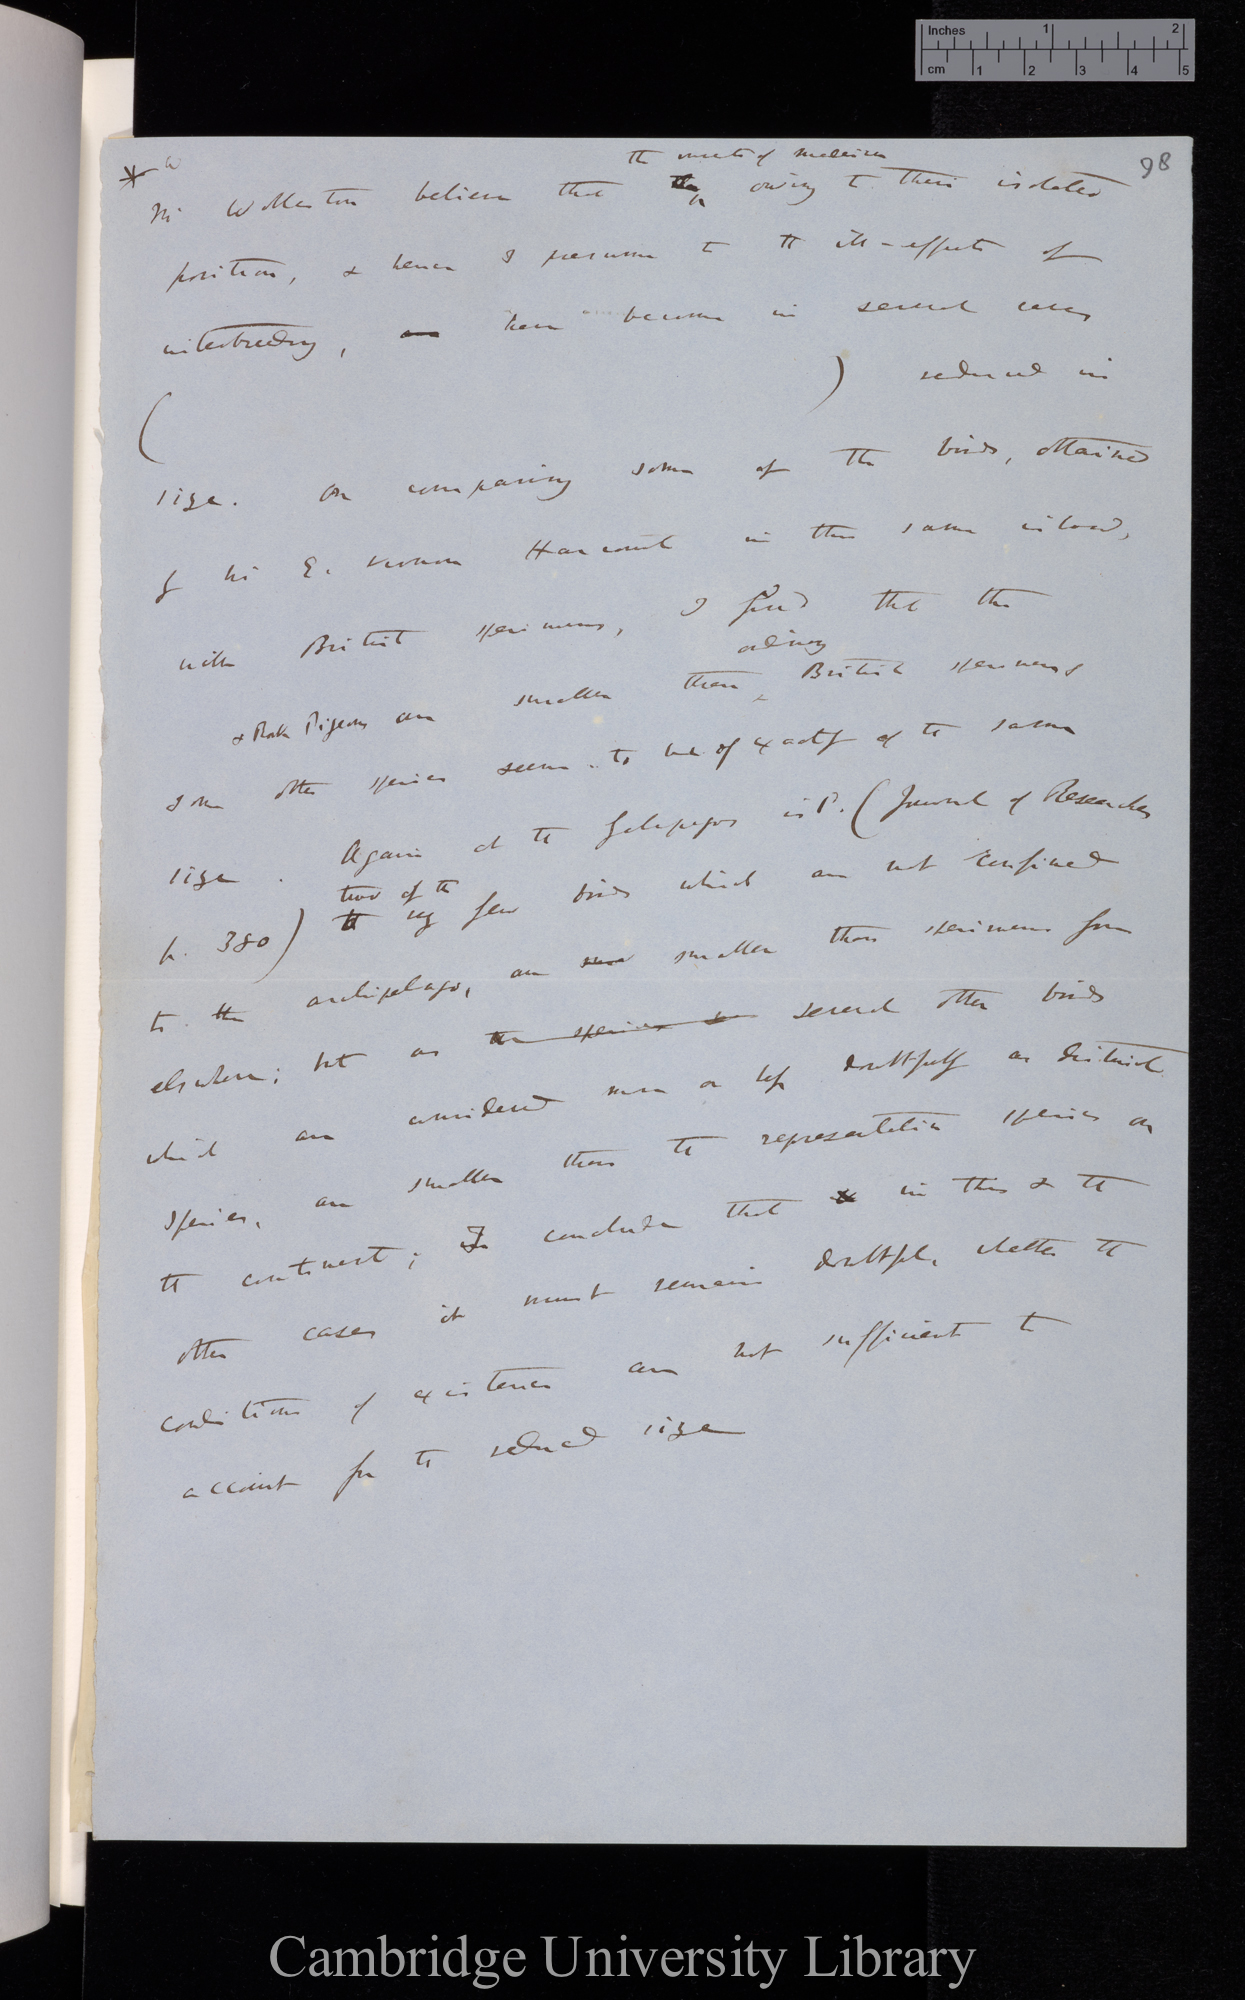 Inches 1 2
cm 1 2 3 4 5
98
the insects of Madeira
Mr Wollaston believes that owing to their isolated
position, & hence I presume to the ill-effects of
interbreeding, have become in several cases
( ) reduced in
size. On comparing some of the birds, obtained
by Mr E. Vernon Harcourt in the same island,
with British specimens, I find that the
ordinary
& Rock Pigeons are smaller than British specimens
some other species seem to be of exactly of the same
size. Again at the Galapagos isd. (Journal of Researches
two of the
p. 380) the very few birds which are not confined
to the archipelago, are smaller than specimens from
elsewhere; but as the species several other birds
which are considered more or less doubtfully as distinct
species, are smaller than the representative species on
the continent; I conclude that in this & the
other cases it must remain doubtful, whether the
conditions of existence are not sufficient to
account for the reduced size
Cambridge University Library